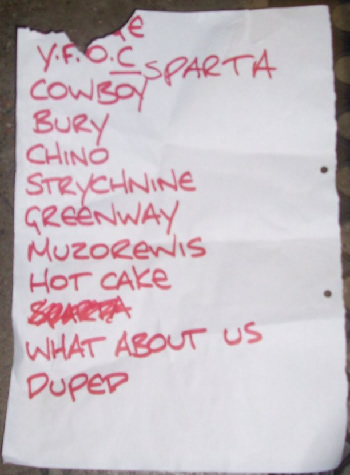 Y.F.O.C
SPARTA
COWBOY
BURY
CHINO
STRYCHNINE
GREENWAY
MUZOREWIS
HOT CAKE
SPARTA
WHAT ABOUT US
DUPED